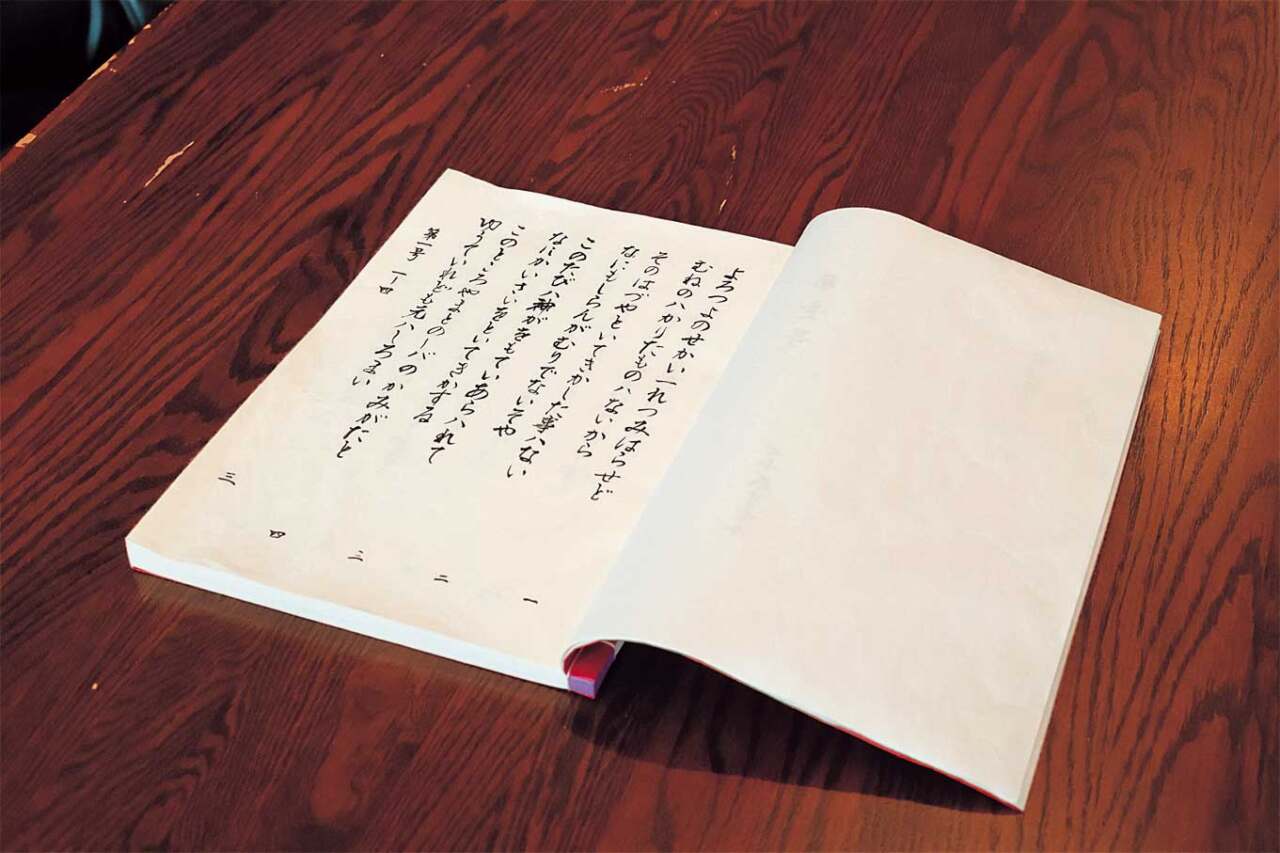 よろつよのせかい一れつみはらせど
むねのハかりたものハないから
一
そのはづやといてきかした事ハない
なにもしらんがむりでないそや
二
このたびハ神がをもていあらハれて
なにかいさいをといてきかする
三
このところやまとのしバのかみがたと
ゆうていれども元ハしろまい
四
第一号 一ー四
三